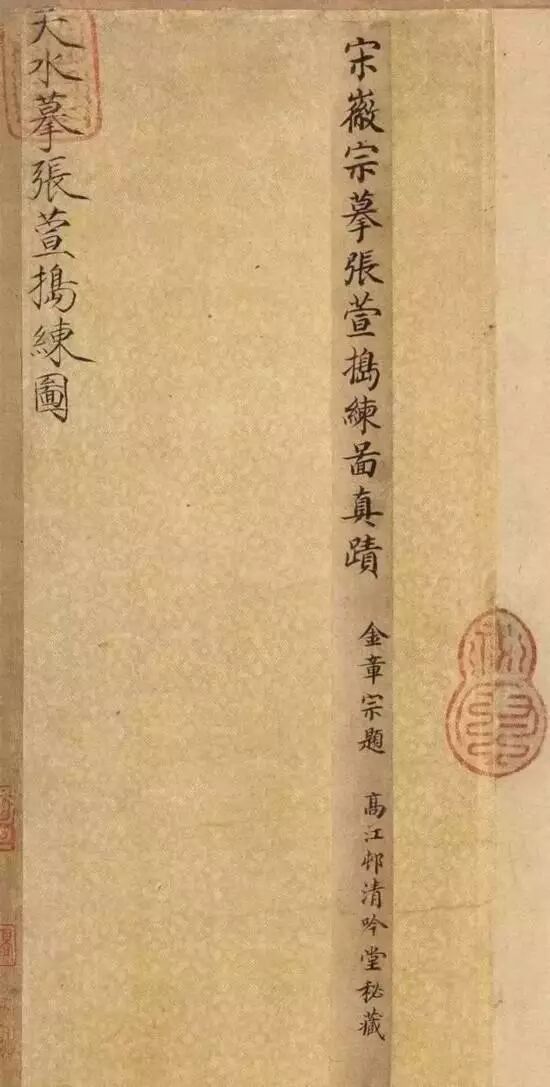 宋徽宗摹張萱搗練圖真蹟 金章宗題 高江邨清吟堂秘藏
天水摹張萱搗練圖